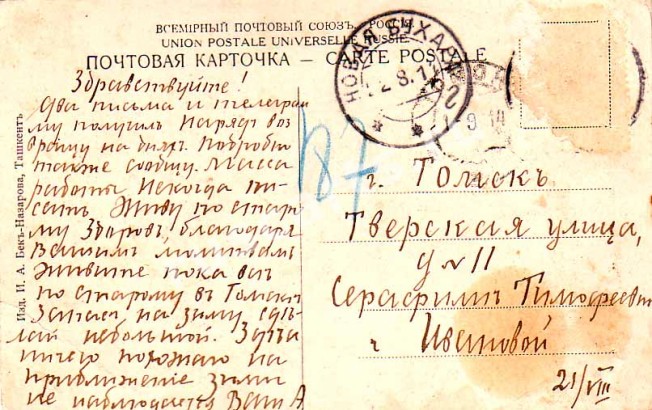 ВСЕМІРНЫЙ ПОЧТОВЫЙ СОЮЗЪ. РОССІЯ
UNION POSTALE UNIVERSELLE. RUSSIE
ПОЧТОВАЯ КАРТОЧКА – CARTE POSTALE
НОВАЯ БУХАРА
Изд. И. А. Бекъ-Назарова, Ташкентъ
Здравствуйте!
Два письма и телеграм
му получилъ Нарядъ воз
вращу на дняхъ. Подробн
также сообщу. Масса
работы Некогда пи-
сать. Живу по старо
му Здоровъ, благодаря
Вашимъ молитвамъ
Живите пока
по старому въ Томскѣ
Запасъ на зиму
лай небольшой. Здѣсь
ничего похожаго на
приближение зимы
не наблюдается Ваш А
187
г. Томскъ
Тверская улица,
д № 11
Серафимъ Тимофеевн
ѣ Ивановой
21/VIII